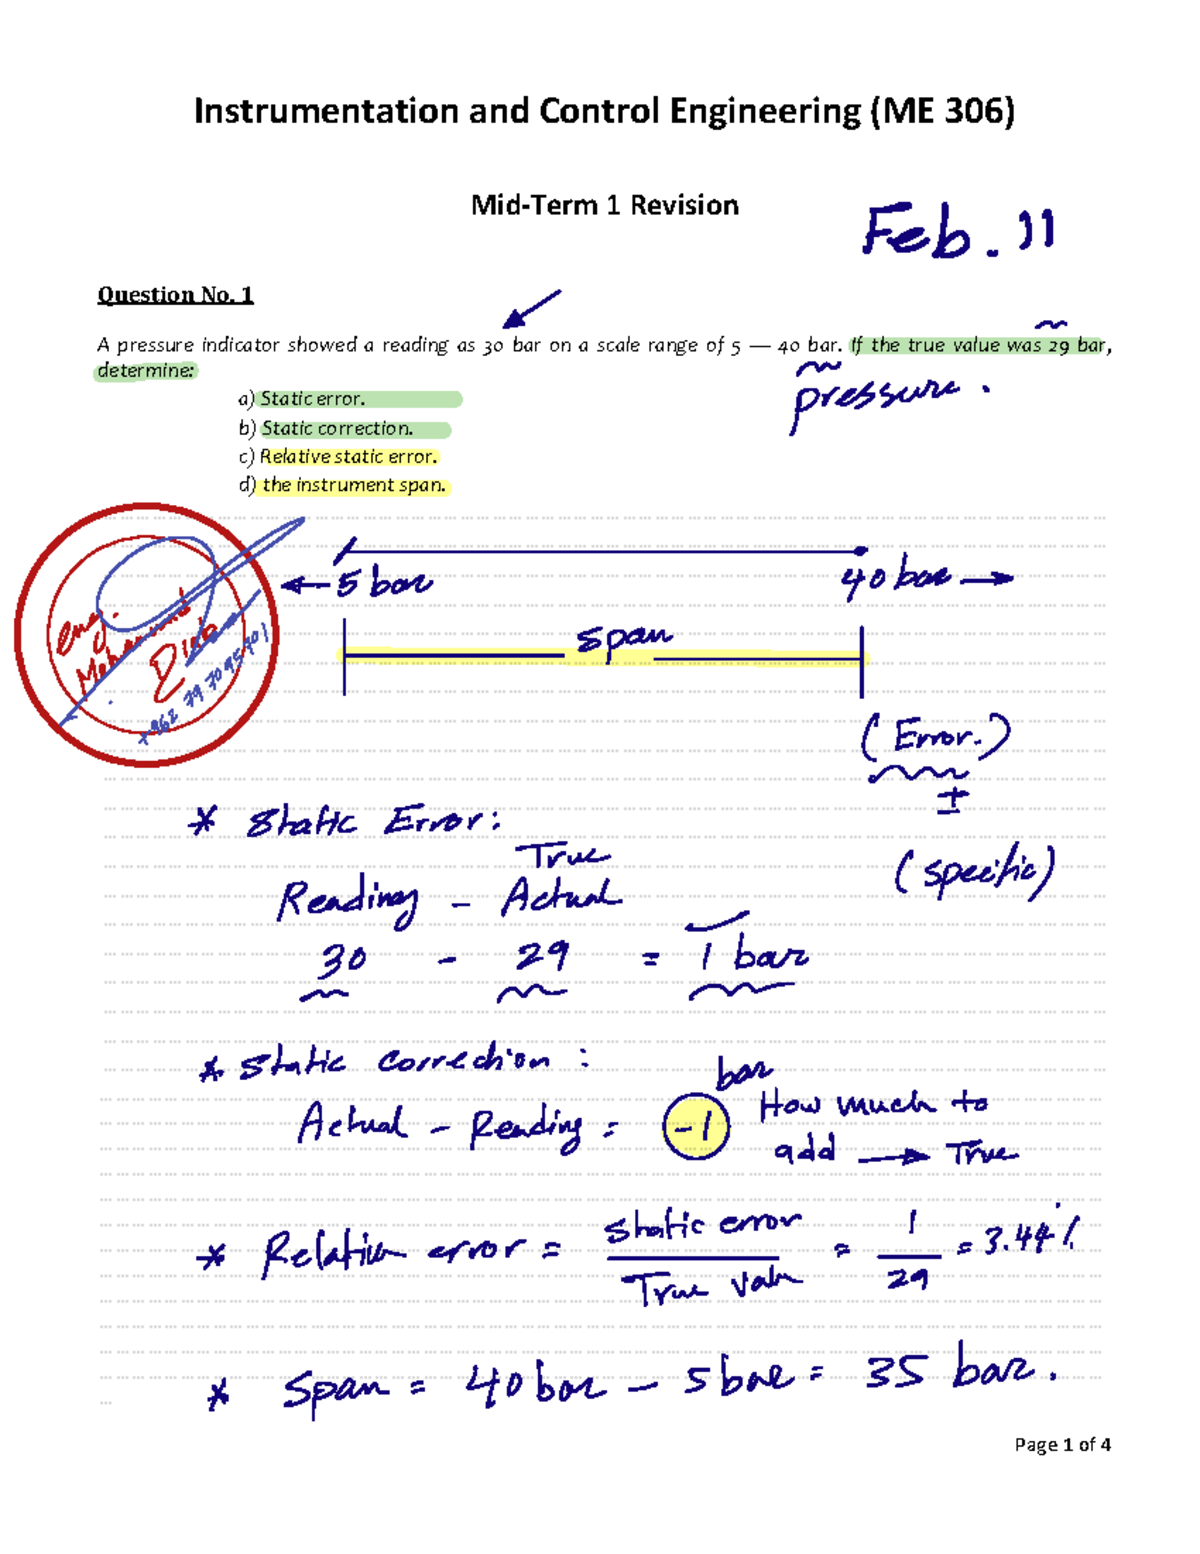 Instrumentation and Control Engineering (ME 306)
Mid-Term 1 Revision
Feb. 11
Question No. 1
A pressure indicator showed a reading as 30 bar on a scale range of 5 — 40 bar. If the true value was 29 bar,
determine:
pressure.
a) Static error.
b) Static correction.
c) Relative static error.
d) the instrument span.
5 bar
40 bar
span
Eng.
Mohammad
Diab
+962 79 7095701
(Error.)
±
* Static Error:
True
(specific)
Reading - Actual
30 - 29 = 1 bar
* Static correction :
bar
Actual - Reading = -1 How much to
add → True
* Relative error = static error / True value = 1 / 29 = 3.44 %
* Span = 40 bar - 5 bar = 35 bar.
Page 1 of 4